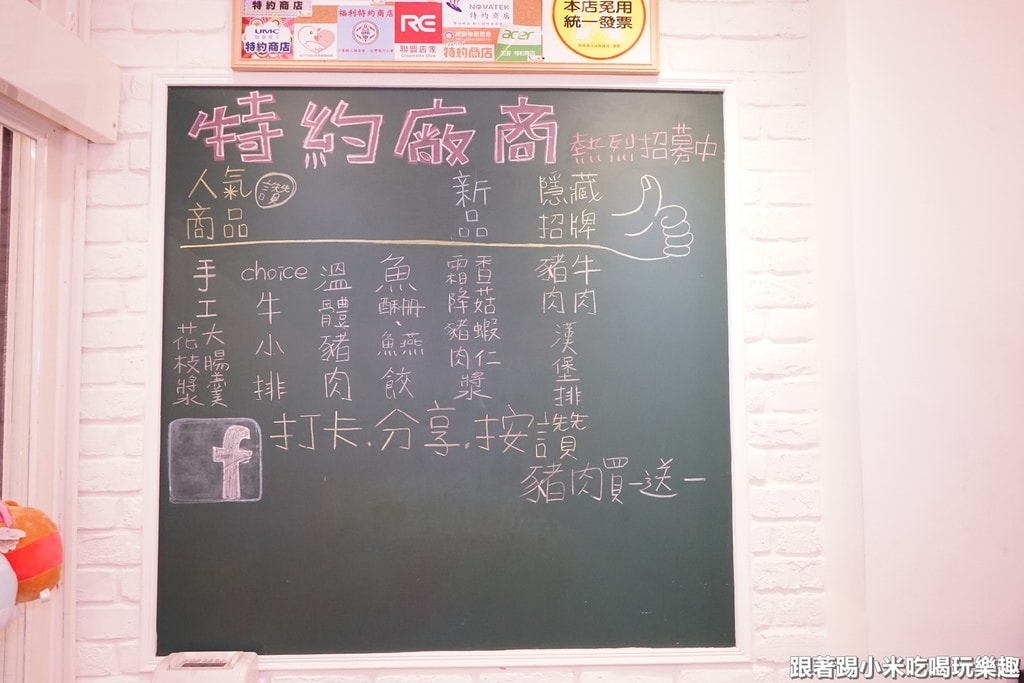 特約商店
福利特約商店
RE
聯盟店家
NOVATEK
特約商店
本店免用
統一發票
UMC
特約商店
特約商店
acer
特約廠商 熱烈招募中
人氣商品 讚
新品
隱藏招牌
手工花枝漿
大腸羹
choice牛小排
溫體豬肉
魚酥冊、魚燕餃
霜降豬肉
香菇蝦仁漿
豬肉
牛肉
漢堡排
f 打卡.分享.按讚
豬肉買一送一
跟著踢小米吃喝玩樂趣